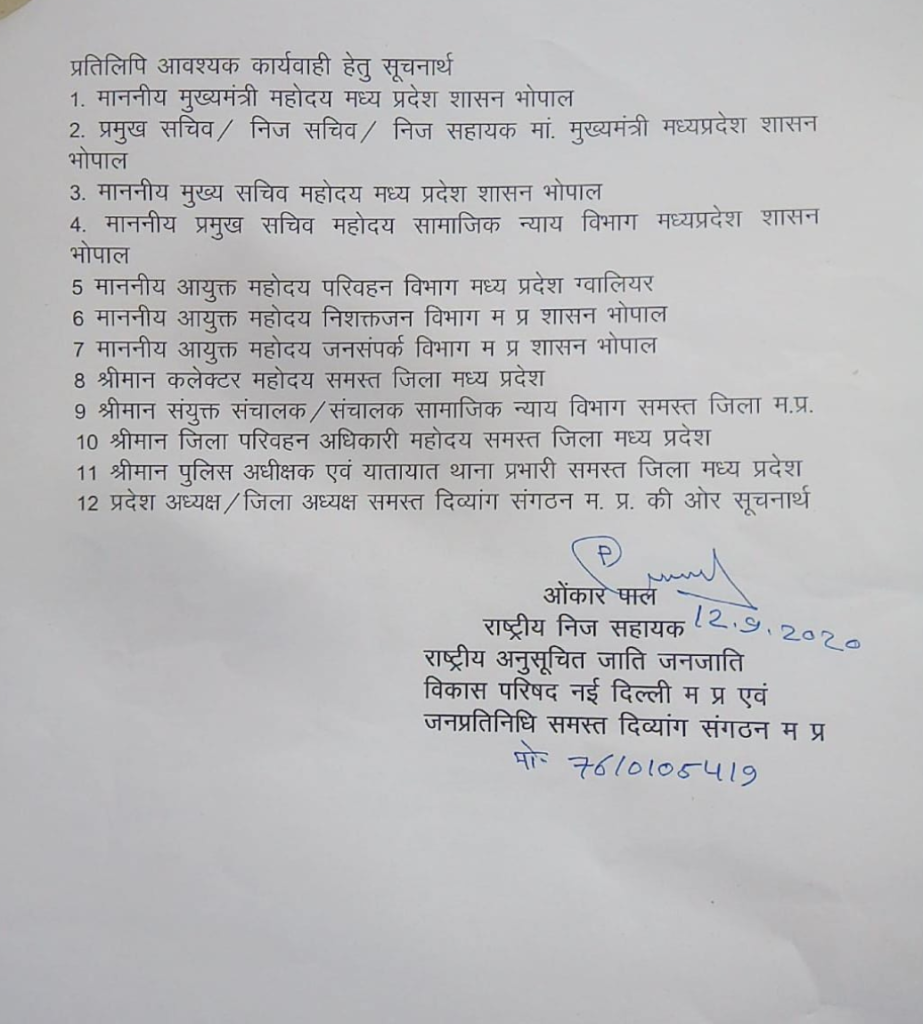 प्रतिलिपि आवश्यक कार्यवाही हेतु सूचनार्थ
1. माननीय मुख्यमंत्री महोदय मध्य प्रदेश शासन भोपाल
2. प्रमुख सचिव/ निज सचिव/ निज सहायक मां. मुख्यमंत्री मध्यप्रदेश शासन
भोपाल
3. माननीय मुख्य सचिव महोदय मध्य प्रदेश शासन भोपाल
4. माननीय प्रमुख सचिव महोदय सामाजिक न्याय विभाग मध्यप्रदेश शासन
भोपाल
5 माननीय आयुक्त महोदय परिवहन विभाग मध्य प्रदेश ग्वालियर
6 माननीय आयुक्त महोदय निशक्तजन विभाग म प्र शासन भोपाल
7 माननीय आयुक्त महोदय जनसंपर्क विभाग म प्र शासन भोपाल
8 श्रीमान कलेक्टर महोदय समस्त जिला मध्य प्रदेश
9 श्रीमान संयुक्त संचालक/संचालक सामाजिक न्याय विभाग समस्त जिला म.प्र.
10 श्रीमान जिला परिवहन अधिकारी महोदय समस्त जिला मध्य प्रदेश
11 श्रीमान पुलिस अधीक्षक एवं यातायात थाना प्रभारी समस्त जिला मध्य प्रदेश
12 प्रदेश अध्यक्ष/जिला अध्यक्ष समस्त दिव्यांग संगठन म. प्र. की ओर सूचनार्थ
ओंकार पाल
राष्ट्रीय निज सहायक 12.9.2020
राष्ट्रीय अनुसूचित जाति जनजाति
विकास परिषद नई दिल्ली म प्र एवं
जनप्रतिनिधि समस्त दिव्यांग संगठन म प्र
मो- 7610105419